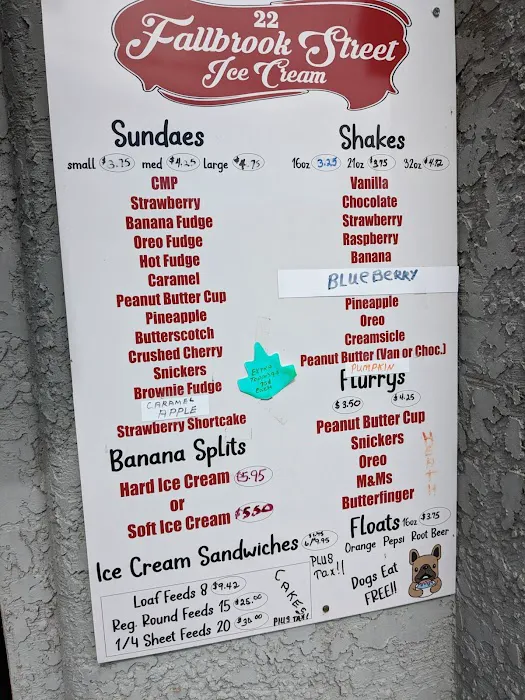 22
Fallbrook Street
Ice Cream
Sundaes
small $3.75 med $4.25 large $4.75
CMP
Strawberry
Banana Fudge
Oreo Fudge
Hot Fudge
Caramel
Peanut Butter Cup
Pineapple
Butterscotch
Crushed Cherry
Snickers
Brownie Fudge
CARAMEL
APPLE
Strawberry Shortcake
Banana Splits
Hard Ice Cream $5.95
or
Soft Ice Cream $5.50
Shakes
16oz 3.25 21oz $3.75 32oz
Vanilla
Chocolate
Strawberry
Raspberry
Banana
BLUEBERRY
Pineapple
Oreo
Creamsicle
Peanut Butter (Van or Choc.)
PUMPKIN
Flurrys
$3.50 $4.25
Peanut Butter Cup
Snickers
Oreo
M&Ms
Butterfinger
HEATH
EXTRA
Floats 16oz $3.75
Orange Pepsi Root Beer
Dogs Eat
FREE!!
Ice Cream Sandwiches
PLUS
Tax!!
Loaf Feeds 8 $9.42
Reg. Round Feeds 15 $25.00
1/4 Sheet Feeds 20 $30.00
CAKES
PLUS TAX!